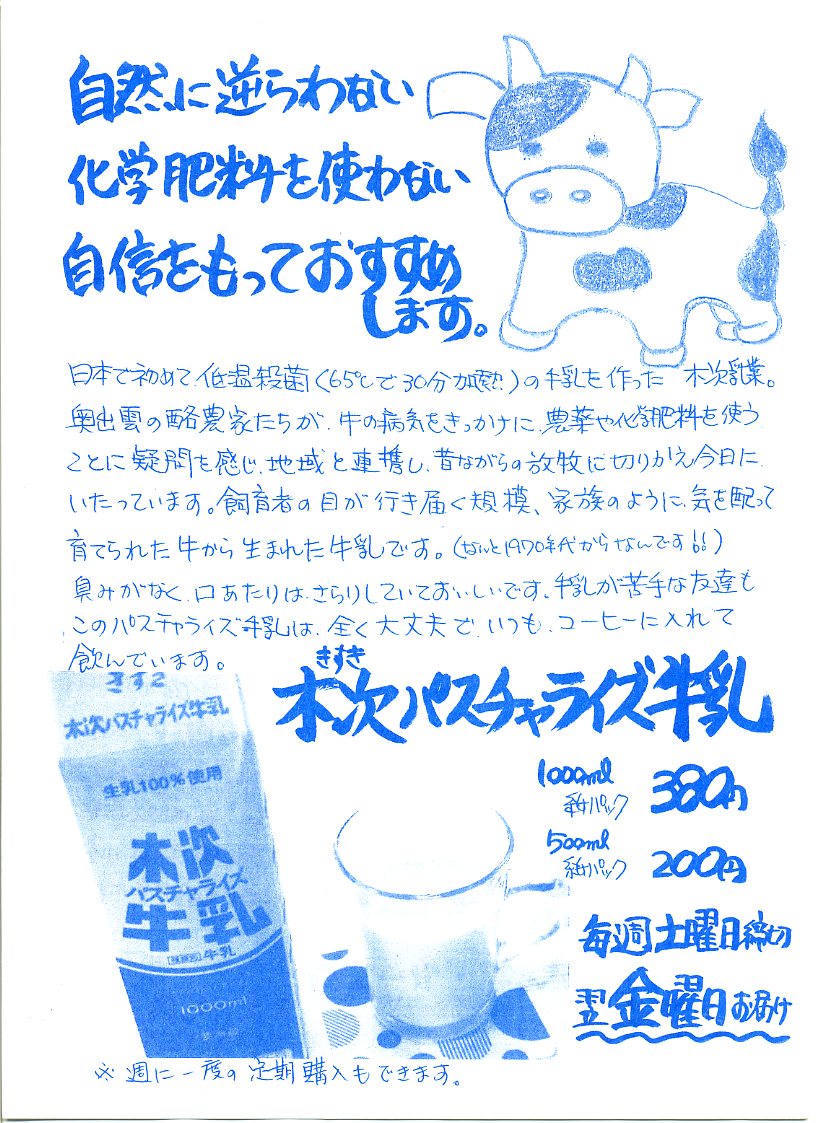 自然に逆らわない
化学肥料を使わない
自信をもっておすすめ
します。
日本で初めて低温殺菌(65℃で30分加熱)の牛乳を作った 木次乳業。
奥出雲の酪農家たちが、牛の病気をきっかけに、農薬や化学肥料を使う
ことに疑問を感じ、地域と連携し、昔ながらの放牧に切りかえ今日に
いたっています。飼育者の目が行き届く規模、家族のように、気を配って
育てられた牛から生まれた牛乳です。(なんと1970年代からなんです!!)
臭みがなく、口あたりは、さらりしていておいしいです。牛乳が苦手な友達も
このパスチャライズ牛乳は、全く大丈夫で、いつも、コーヒーに入れて
飲んでいます。
きすき
木次パスチャライズ牛乳
木次パスチャライズ牛乳
生乳100%使用
木次
パスチャライズ
牛乳
牛乳
1000ml
1000ml
紙パック
380円
500ml
紙パック
200円
毎週土曜日締切
翌金曜日お届け
※週に一度の定期購入もできます。